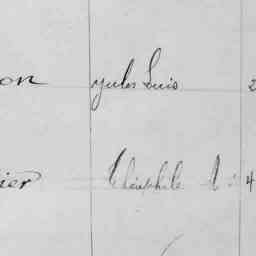 on yules Luis 2
ier Théophile 4